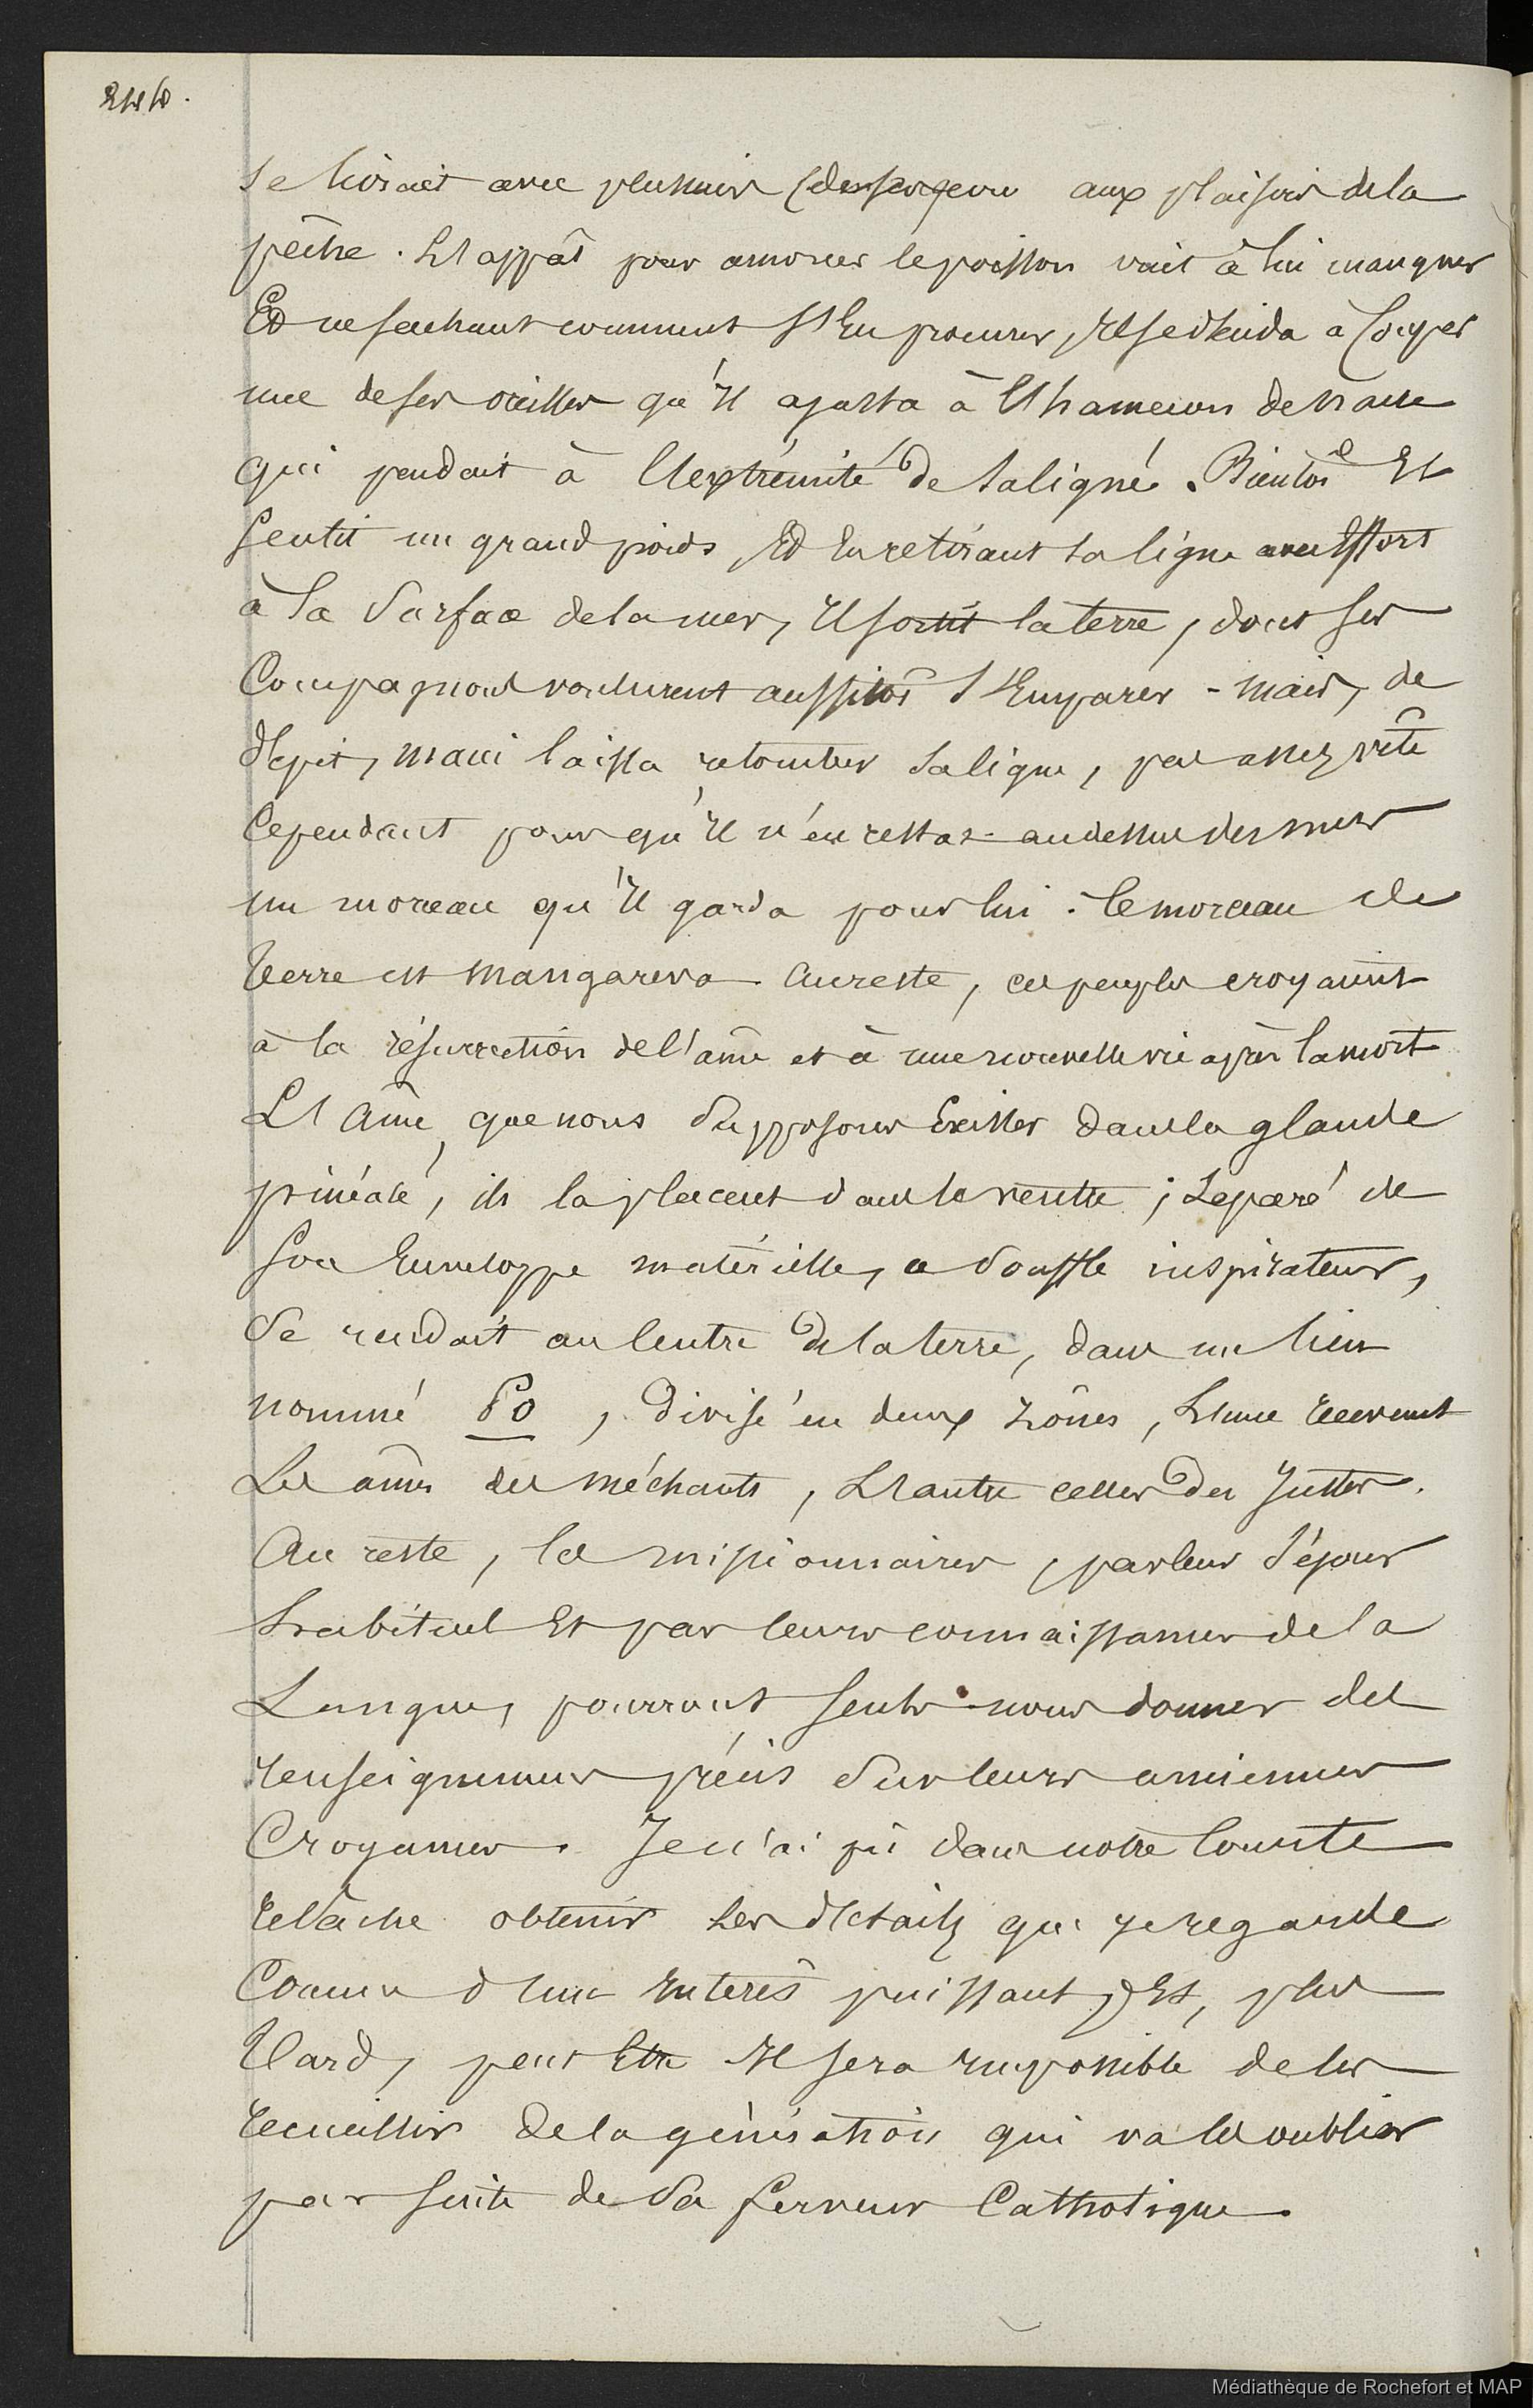 se livrait avec plusieurs aux plaisirs de la
pêche. L'appât pour amorcer le poisson vint à lui manquer
Et ne sachant comment s'En procurer, Il se décida à Couper
une de ses oreilles qu'Il ajusta à l'hameçon de nacre
qui pendait à l'extrémité de sa ligne. Bientôt Il
Sentit un grand poids, Et En retirant sa ligne avec Effort
à la Surface de la mer, Il sortit la terre, dont ses
Compagnons voulurent aussitôt s'Emparer - mais, de
dépit, Maui laissa retomber Sa ligne, pas assez vîte
Cependant pour qu'Il n'en restat au dessus des mers
un morceau qu'Il garda pour lui. Ce morceau de
terre est Mangareva. Au reste, ces peuples croyaient
à la résurrection de l'âme et à une nouvelle vie après la mort
L'âme, que nous Supposons Exister dans la glande
pinéale, ils la placent dans le ventre ; Séparé de
Son Enveloppe matérielle, ce Souffle inspirateur,
Se rendait au Centre de la terre, dans un lieu
nommé Po, Divisé en deux zônes, L'une recevant
Les âmes des méchants, L'autre celles des Justes.
Au reste, les missionnaires, par leur Séjour
habituel Et par leurs connaissances de la
Langue, pourront Seuls nous donner des
renseignemens précis Sur leurs anciennes
Croyances. Je n'ai pû dans notre Courte
relâche obtenir Les détails que je regarde
Comme d'un Intérêt puissant, Et, plus
Tard, peut Etre Il sera Impossible de les
recueillir De la génération qui va les oublier
par suite de Sa ferveur Catholique.
Médiathèque de Rochefort et MAP